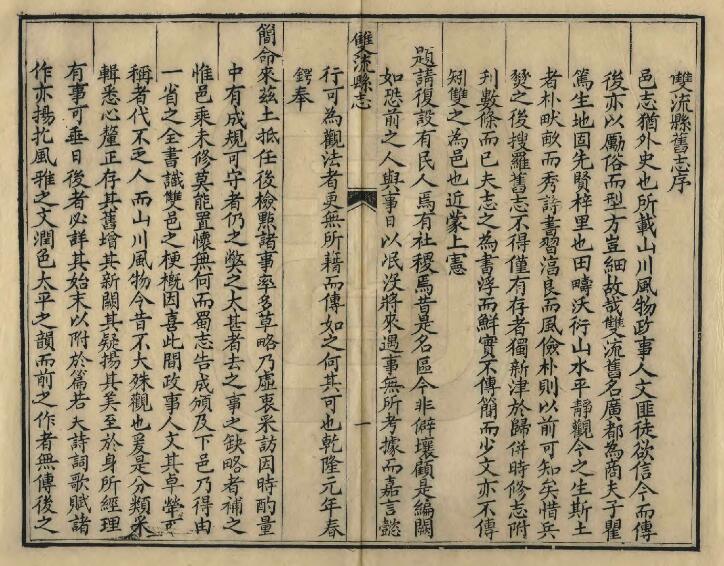 雙流縣舊志序
邑志猶外史也所載山川風物政事人文匪徒欲信今而傳
後亦以勵俗而型方豈細故哉雙流舊名廣都為商夫子瞿
篤生地固先賢梓里也田疇沃衍山水平靜觀今之生斯土
者朴畎畝而秀詩書習湻良而風儉朴則以前可知矣惜兵
燹之後搜羅舊志不得僅有存者獨新津於歸併時修志附
刋數條而已夫志之為書浮而鮮實不傳簡而少文亦不傳
矧雙之為邑也近蒙上憲
題請復設有民人焉有社稷焉昔是名區今非僻壤顧是編闕
如恐前之人與事日以氓沒將來遇事無所考據而嘉言懿
雙流縣志
一
行可為觀法者更無所藉而傳如之何其可也乾隆元年春
鍔奉
簡命來茲土抵任後檢點諸事率多草略乃虛衷采訪因時酌量
中有成規可守者仍之獘之大甚者去之事之缺略者補之
惟邑乘未修莫能置懷無何而蜀志告成頒及下邑乃得由
一省之全書識雙邑之梗概因喜此間政事人文其卓犖可
稱者代不乏人而山川風物今昔不大殊觀也爰是分類采
輯悉心釐正存其舊增其新闕其疑揚其美至於身所經理
有事可垂日後者必詳其始末以附於篇若夫詩詞歌賦諸
作亦揚扢風雅之文潤色太平之韻而前之作者無傳後之